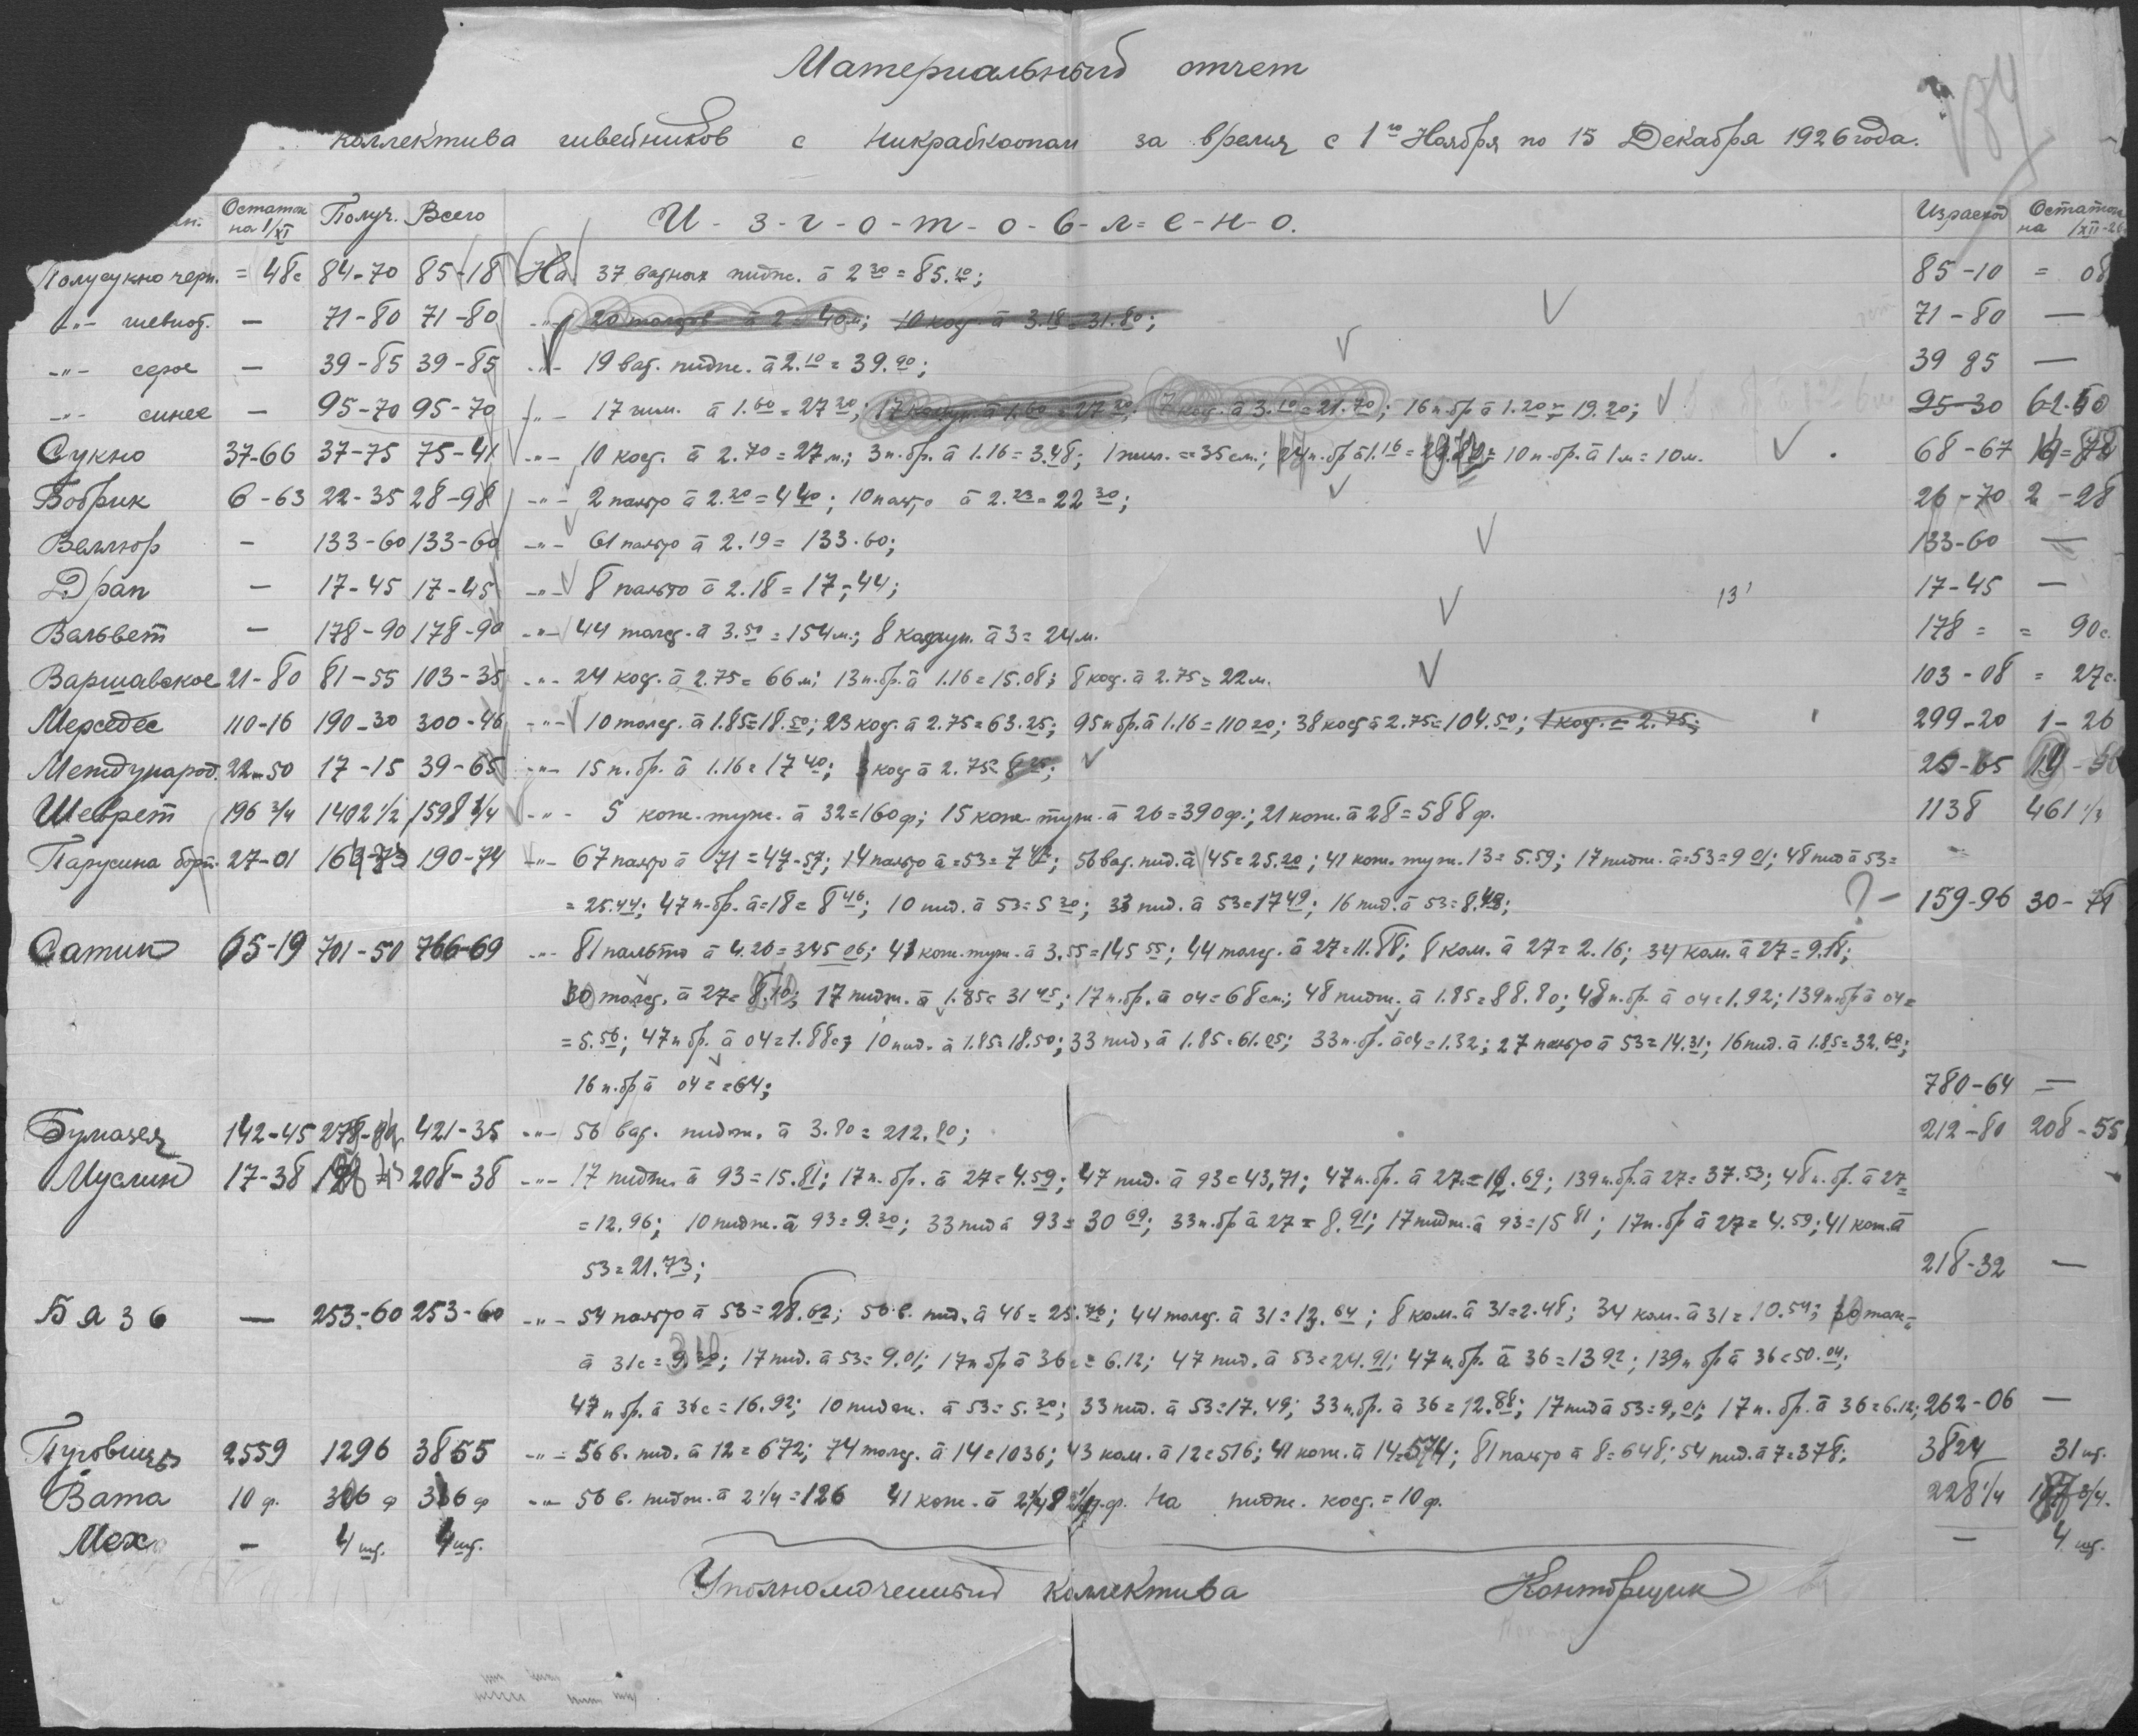 Материальный отчет
коллектива швейников с Никрабкоопом за время с 1го Ноября по 15 Декабря 1926 года.
Остаток на 1/XI Получ. Всего И-з-г-о-т-о-в-л-е-н-о. Израсход Остаток на 1/XII-26
Полусукно черн. = 48с 84-70 85-18 На 37 ватных пидж. à 2 30 = 85.10; 85-10 = 08
-"- шевиот. — 71-80 71-80 -"- 20 толст. à 2 = 40м; 10 кос. à 3.18 = 31.80; 71-80 —
-"- серое — 39-85 39-85 -"- 19 ват. пидж. à 2.10 = 39.90; 39 85 —
-"- синее — 95-70 95-70 -"- 17 à 1.60 = 27 20; 17 à 1.60 = 27 20; 7 кос. à 3.10 = 21.70; 16 п.бр à 1.20 = 19.20; 95-30
Сукно 37-66 37-75 75-41 -"- 10 кос. à 2.70 = 27 м.; 3 п.бр. à 1.16 = 3.48; 1 жил. = 35 см.; п.бр à 1.16 = 10 п.бр. à 1 м = 10 м. 68-67
Бобрик 6-63 22-35 28-98 -"- 2 пальто à 2.20 = 4 40; 10 пальто à 2.23 = 22 30; 26-70 2-28
Веллюр - 133-60 133-60 -"- 61 пальто à 2.19 = 133.60; 133-60 —
Драп — 17-45 17-45 -"- 8 пальто à 2.18 = 17,44; 13 17-45 —
Вальвет — 178-90 178-90 -"- 44 толст. à 3.50 = 154 м.; 8 à 3 = 24 м. 178 = = 90с.
Варшавское 21-80 81-55 103-35 -"- 24 кос. à 2.75 = 66 м; 13 п.бр. à 1.16 = 15.08; 8 кос. à 2.75 = 22 м. 103-08 = 27с.
Мерседес 110-16 190-30 300-46 -"- 10 толст. à 1.85 = 18.50; 23 кос. à 2.75 = 63.25; 95 п.бр. à 1.16 = 110 20; 38 кос à 2.75 = 104.50; 1 кос. = 2.75; 299-20 1-26
Международ. 22-50 17-15 39-65 -"- 15 п.бр. à 1.16 = 17 40; 3 кос à 2.75 = 8 25;
Шеврет 196 3/4 1402 1/2 1598 1/4 -"- 5 кож.туж. à 32 = 160 ф; 15 кож.туж. à 26 = 390 ф.; 21 кож. à 28 = 588 ф. 1138 461 1/4
Парусина борт. 27-01 190-74 -"- 67 пальто à 71 = 47-57; 14 пальто à = 53 = 7 42; 56 ват. пид. à 45 = 25.20; 41 кож. туж. 13 = 5.59; 17 пидж. à = 53 = 9 01; 48 пид à 53 =
= 25.44; 47 п.бр. à = 18 = 8 46; 10 пид. à 53 = 5 30; 33 пид. à 53 = 17 49; 16 пид. à 53 = 8.48; ?- 159-96 30-78
Сатин 65-19 701-50 766-69 -"- 81 пальто à 4.26 = 345 06; 41 кож.туж. à 3.55 = 145 55; 44 толст. à 27 = 11.88; 8 ком. à 27 = 2.16; 34 ком. à 27 = 9.18;
30 толст. à 27 = 8.10; 17 пидж. à 1.85 = 31 45; 17 п.бр. à 04 = 68 см; 48 пидж. à 1.85 = 88.80; 48 п.бр. à 04 = 1.92; 139 п.бр à 04 =
= 5.56; 47 п.бр. à 04 = 1.88с; 10 пид. à 1.85 = 18.50; 33 пид. à 1.85 = 61.05; 33 п.бр. à 04 = 1.32; 27 пальто à 53 = 14.31; 16 пид. à 1.85 = 32.60;
16 п.бр à 04 = = 64; 780-64 =
Бумазея 142-45 421-35 -"- 56 ват. пидж. à 3.80 = 212.80; 212-80 208-55
Муслин 17-38 208-38 -"- 17 пидж. à 93 = 15.81; 17 п.бр. à 27 = 4.59; 47 пид. à 93 = 43,71; 47 п.бр. à 27 = 12.69; 139 п.бр. à 27 = 37.53; 48 п.бр. à 27 =
= 12.96; 10 пидж. à 93 = 9.30; 33 пид à 93 = 30 69; 33 п.бр à 27 = 8.91; 17 пидж. à 93 = 15 81; 17 п.бр à 27 = 4.59; 41 кож. à
53 = 21.73; 218-32 —
Бязь — 253-60 253-60 -"- 54 пальто à 53 = 28.62; 56 в. пид. à 46 = 25.76; 44 толст. à 31 = 13.64; 8 ком. à 31 = 2.48; 34 ком. à 31 = 10.54; 30 толст
à 31с = 9.30; 17 пид. à 53 = 9.01; 17 п.бр à 36 = 6.12; 47 пид. à 53 = 24.91; 47 п.бр. à 36 = 13 92; 139 п.бр à 36 = 50.04;
47 п.бр. à 36с = 16.92; 10 пидж. à 53 = 5.30; 33 пид. à 53 = 17.49; 33 п.бр. à 36 = 12.88; 17 пид à 53 = 9,01; 17 п.бр. à 36 = 6.12; 262-06 —
Пуговицы 2559 1296 3855 -"- 56 в. пид. à 12 = 672; 74 толст. à 14 = 1036; 43 ком. à 12 = 516; 41 кож. à 14 = 574; 81 пальто à 8 = 648; 54 пид. à 7 = 378; 3824 31 шт.
Вата 10 ф. 306 ф 316 ф -"- 56 в. пидж. à 2 1/4 = 126 41 кож. à 2 1/4 ф. На пидж. кос. = 10 ф. 228 1/4 87 3/4.
Мех — 4 шт. 4 шт. — 4 шт.
Уполномоченный коллектива Конторщик